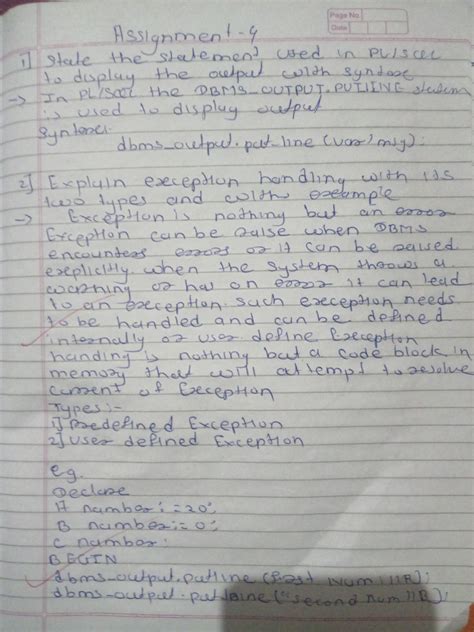 Page No.
Date
Assignment - 4
1] State the statement used in PL/SQL
to display the output with syntax
→ In PL/SQL the DBMS_OUTPUT.PUTLINE statem
is used to display output
Syntax:
dbms_output.put-line (var/msg);
2] Explain exception handling with its
two types and with example
→ Exception is nothing but an error
Exception can be raise when DBMS
encounters errors or it can be raised
explicitly when the system throws a
warning or has on error it can lead
to an exception. Such exception needs
to be handled and can be defined
internally or user define Exception
handing is nothing but a code block in
memory that will attempt to resolve
current of Exception
Types:-
1] Predefined Exception
2] User defined Exception
eg.
Declare
A number:=20;
B number:=0;
C number;
BEGIN
dbms_output.putline (first Num ||A);
dbms_output.putline ("second num ||B);